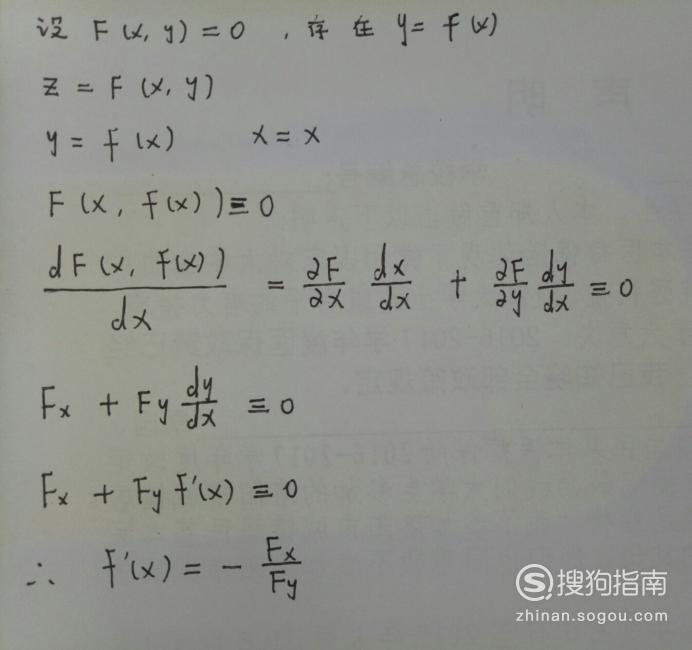 设 F(x,y)=0 ,存在 y=f(x)
z = F(x,y)
y = f(x) x = x
F(x, f(x))≡0
dF(x, f(x))/dx = ∂F/∂x dx/dx + ∂F/∂y dy/dx ≡0
Fx + Fy dy/dx ≡0
Fx + Fy f'(x) ≡0
∴ f'(x) = - Fx/Fy
S 搜狗指南
zhinan.sogou.com